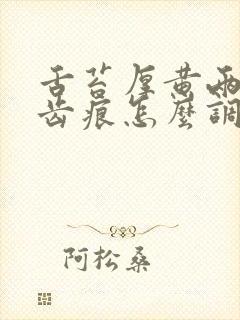 舌苔厚黄两
齿痕怎麼調
阿松桑